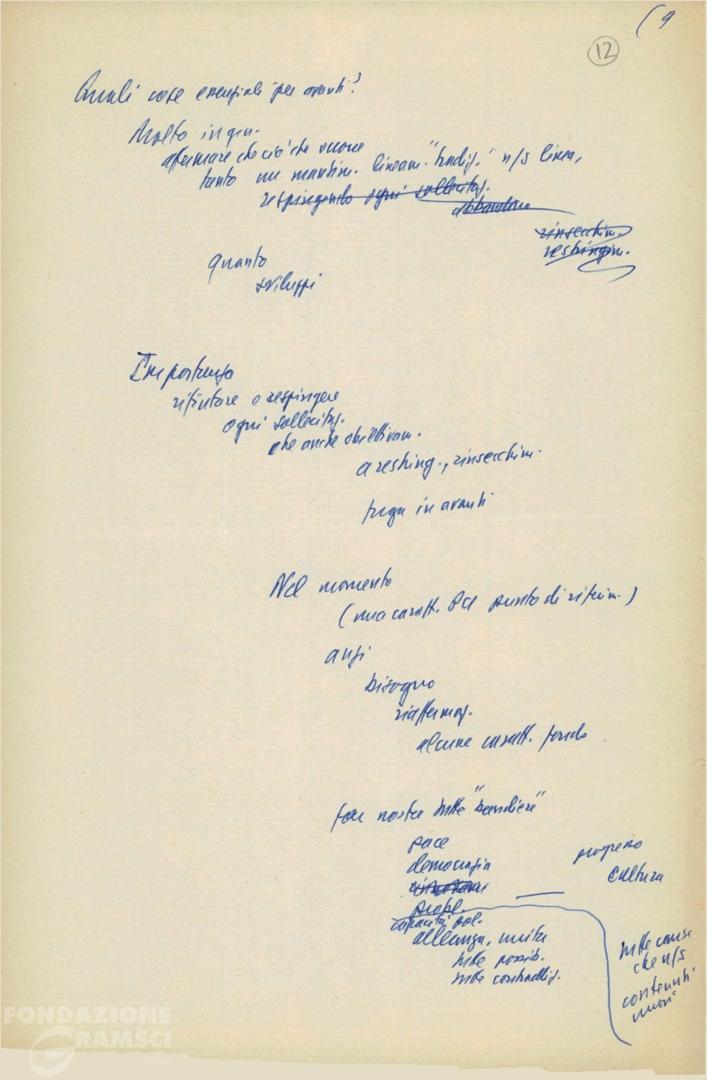 (9
12
Quali cose essenziali per avanti?
Molto in gen.
affermare che ciò che occorre
tanto un mantenim. lineam. "tradiz." n/s linea,
respingendo ogni sollecitaz.
abbandono
rinsecchim.
restringim.
quanto
sviluppi
Importanza
rifiutare e respingere
ogni sollecitaz.
che anche obiettivam.
a restring., rinsecchim.
fuga in avanti
Nel momento
(nua caratt. PCI punto di riferim.)
anzi
bisogno
riaffermaz.
alcune caratt. fondo
far nostre tutte "bandiere"
pace
democrazia
progresso
cultura
probl.
capacità pol.
alleanza, unità
tutte possib.
tutte contraddiz.
tutte cause
che n/s
contenuti
nuovi
FONDAZIONE
GRAMSCI